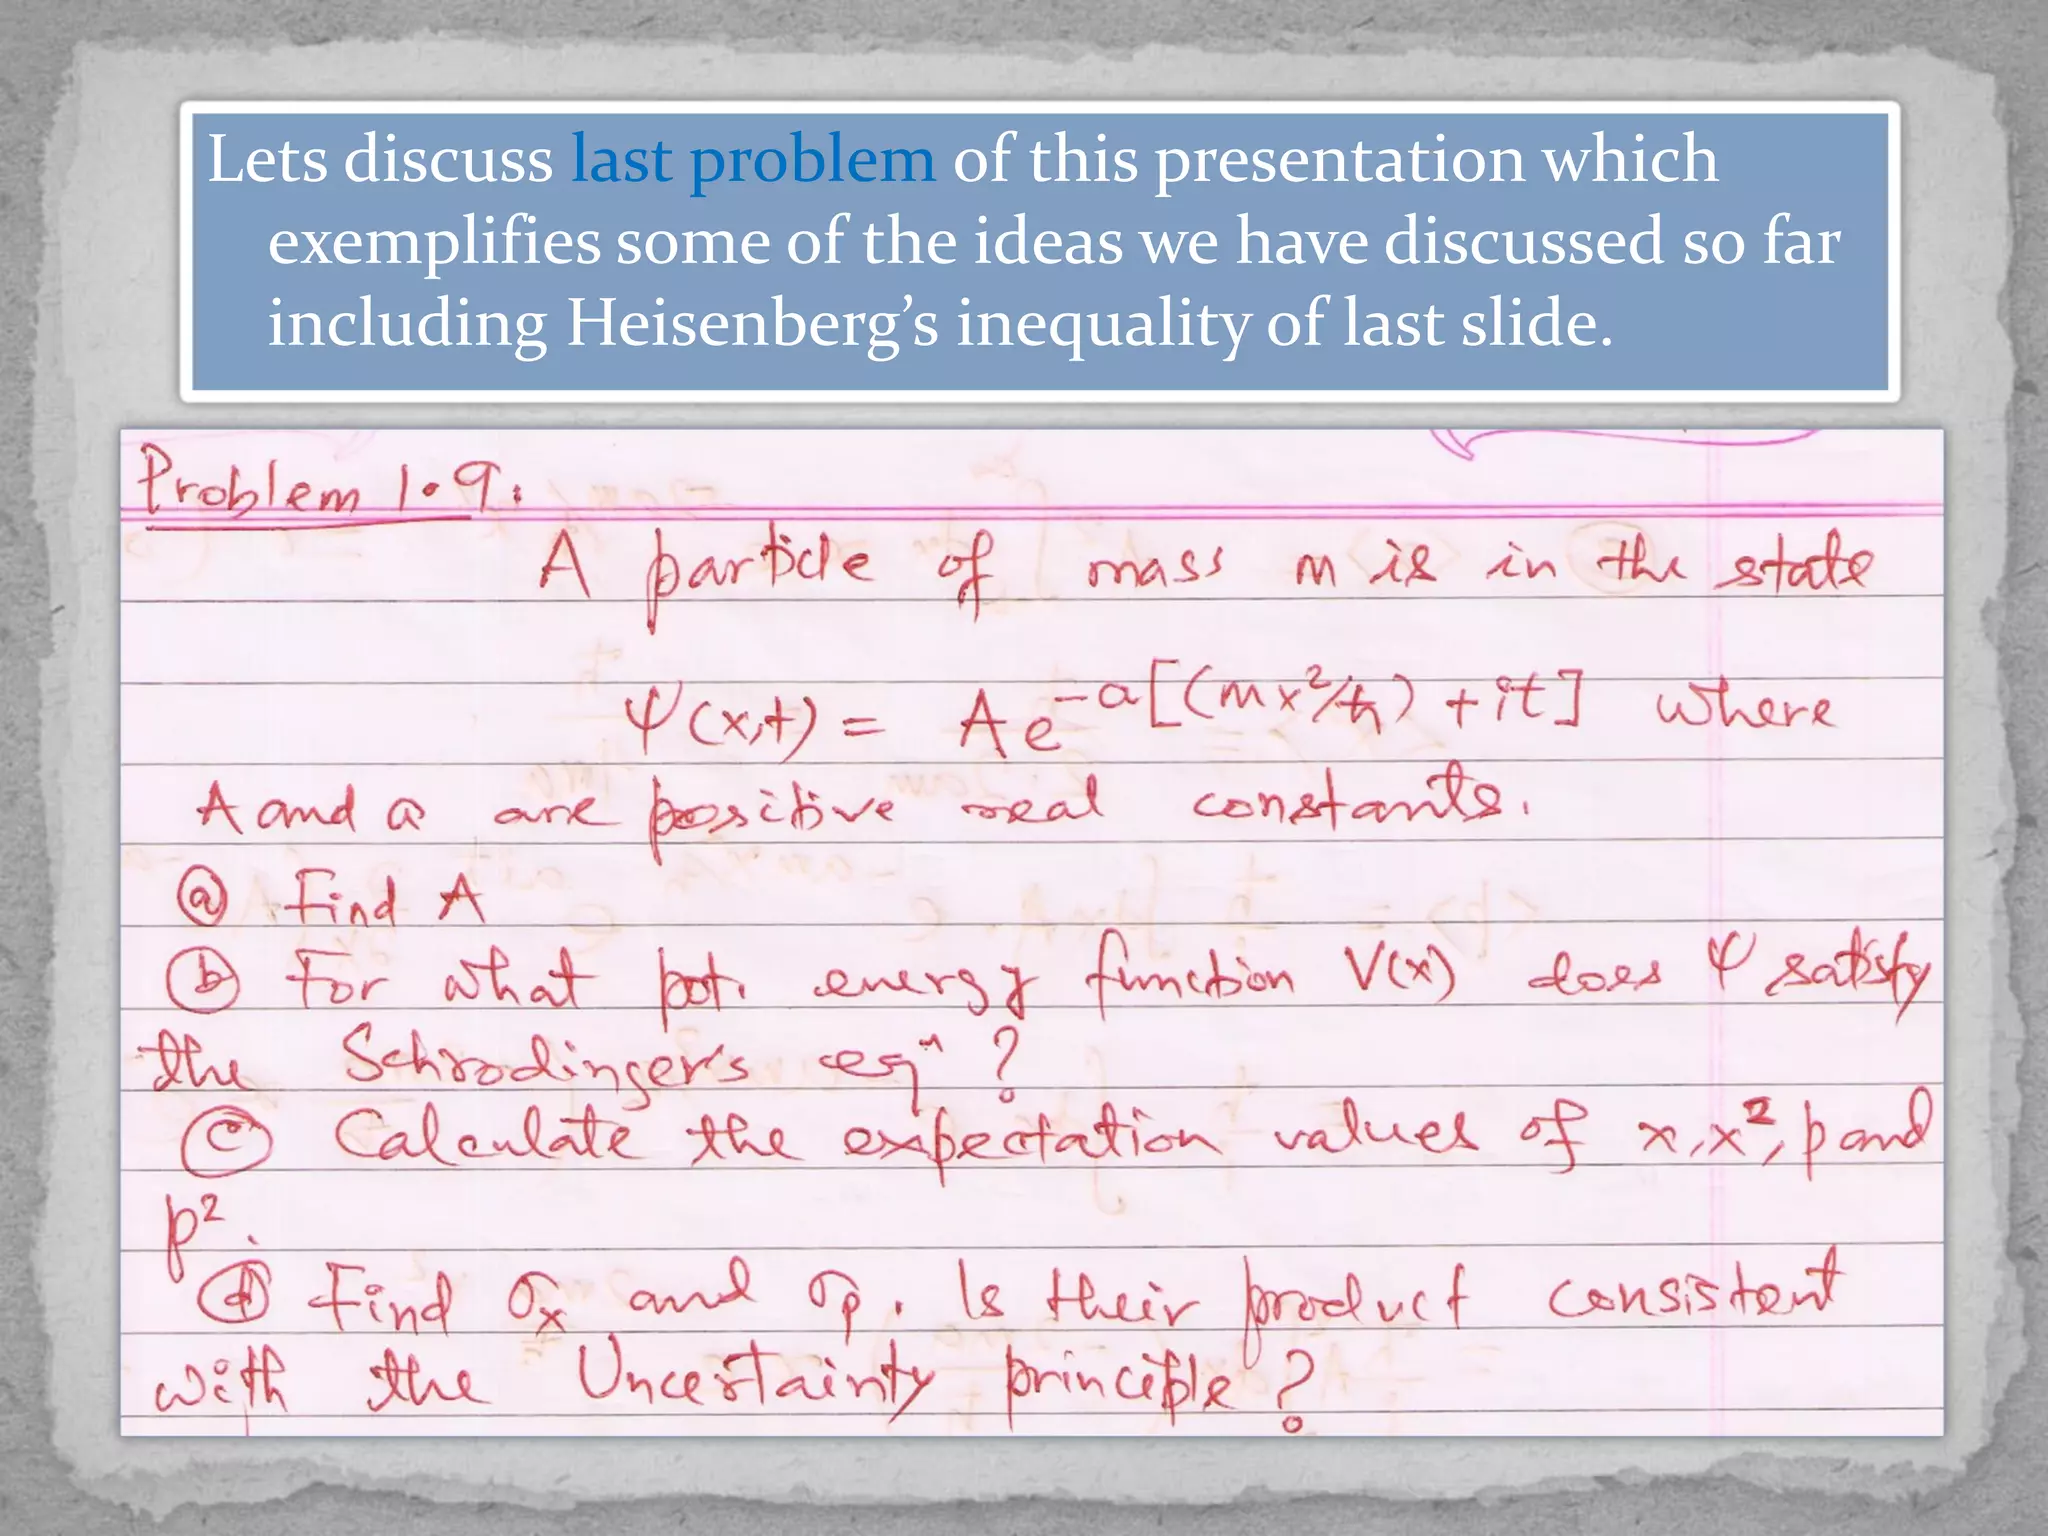 Lets discuss last problem of this presentation which
exemplifies some of the ideas we have discussed so far
including Heisenberg’s inequality of last slide.
Problem 1.9.
A particle of mass m is in the state
Ψ(x,t) = A e^{-a[(mx²/ħ) + it]} where
A and a are positive real constants.
ⓐ Find A
ⓑ For what pot. energy function V(x) does Ψ satisfy
the Schrodinger's eqⁿ ?
ⓒ Calculate the expectation values of x, x², p and
p².
ⓓ Find σx and σp. Is their product consistent
with the Uncertainty principle ?